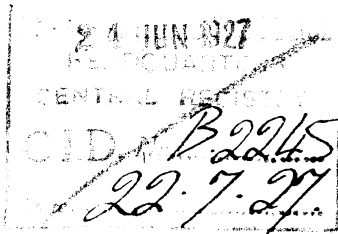 24 JUN 1927
HEADQUARTERS
CENTRAL REGISTRY
C.I.D. No. B.2245
22.7.27.